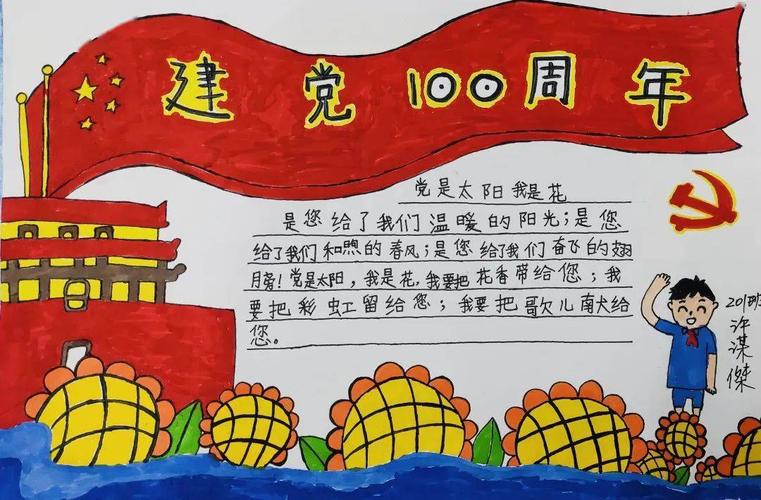 建党100周年
党是太阳我是花
是您给了我们温暖的阳光；是您
给了我们和煦的春风；是您给了我们奋飞的翅
膀！党是太阳，我是花，我要把花香带给您；我
要把彩虹留给您；我要把歌儿献给
您。
201班
许谋傑